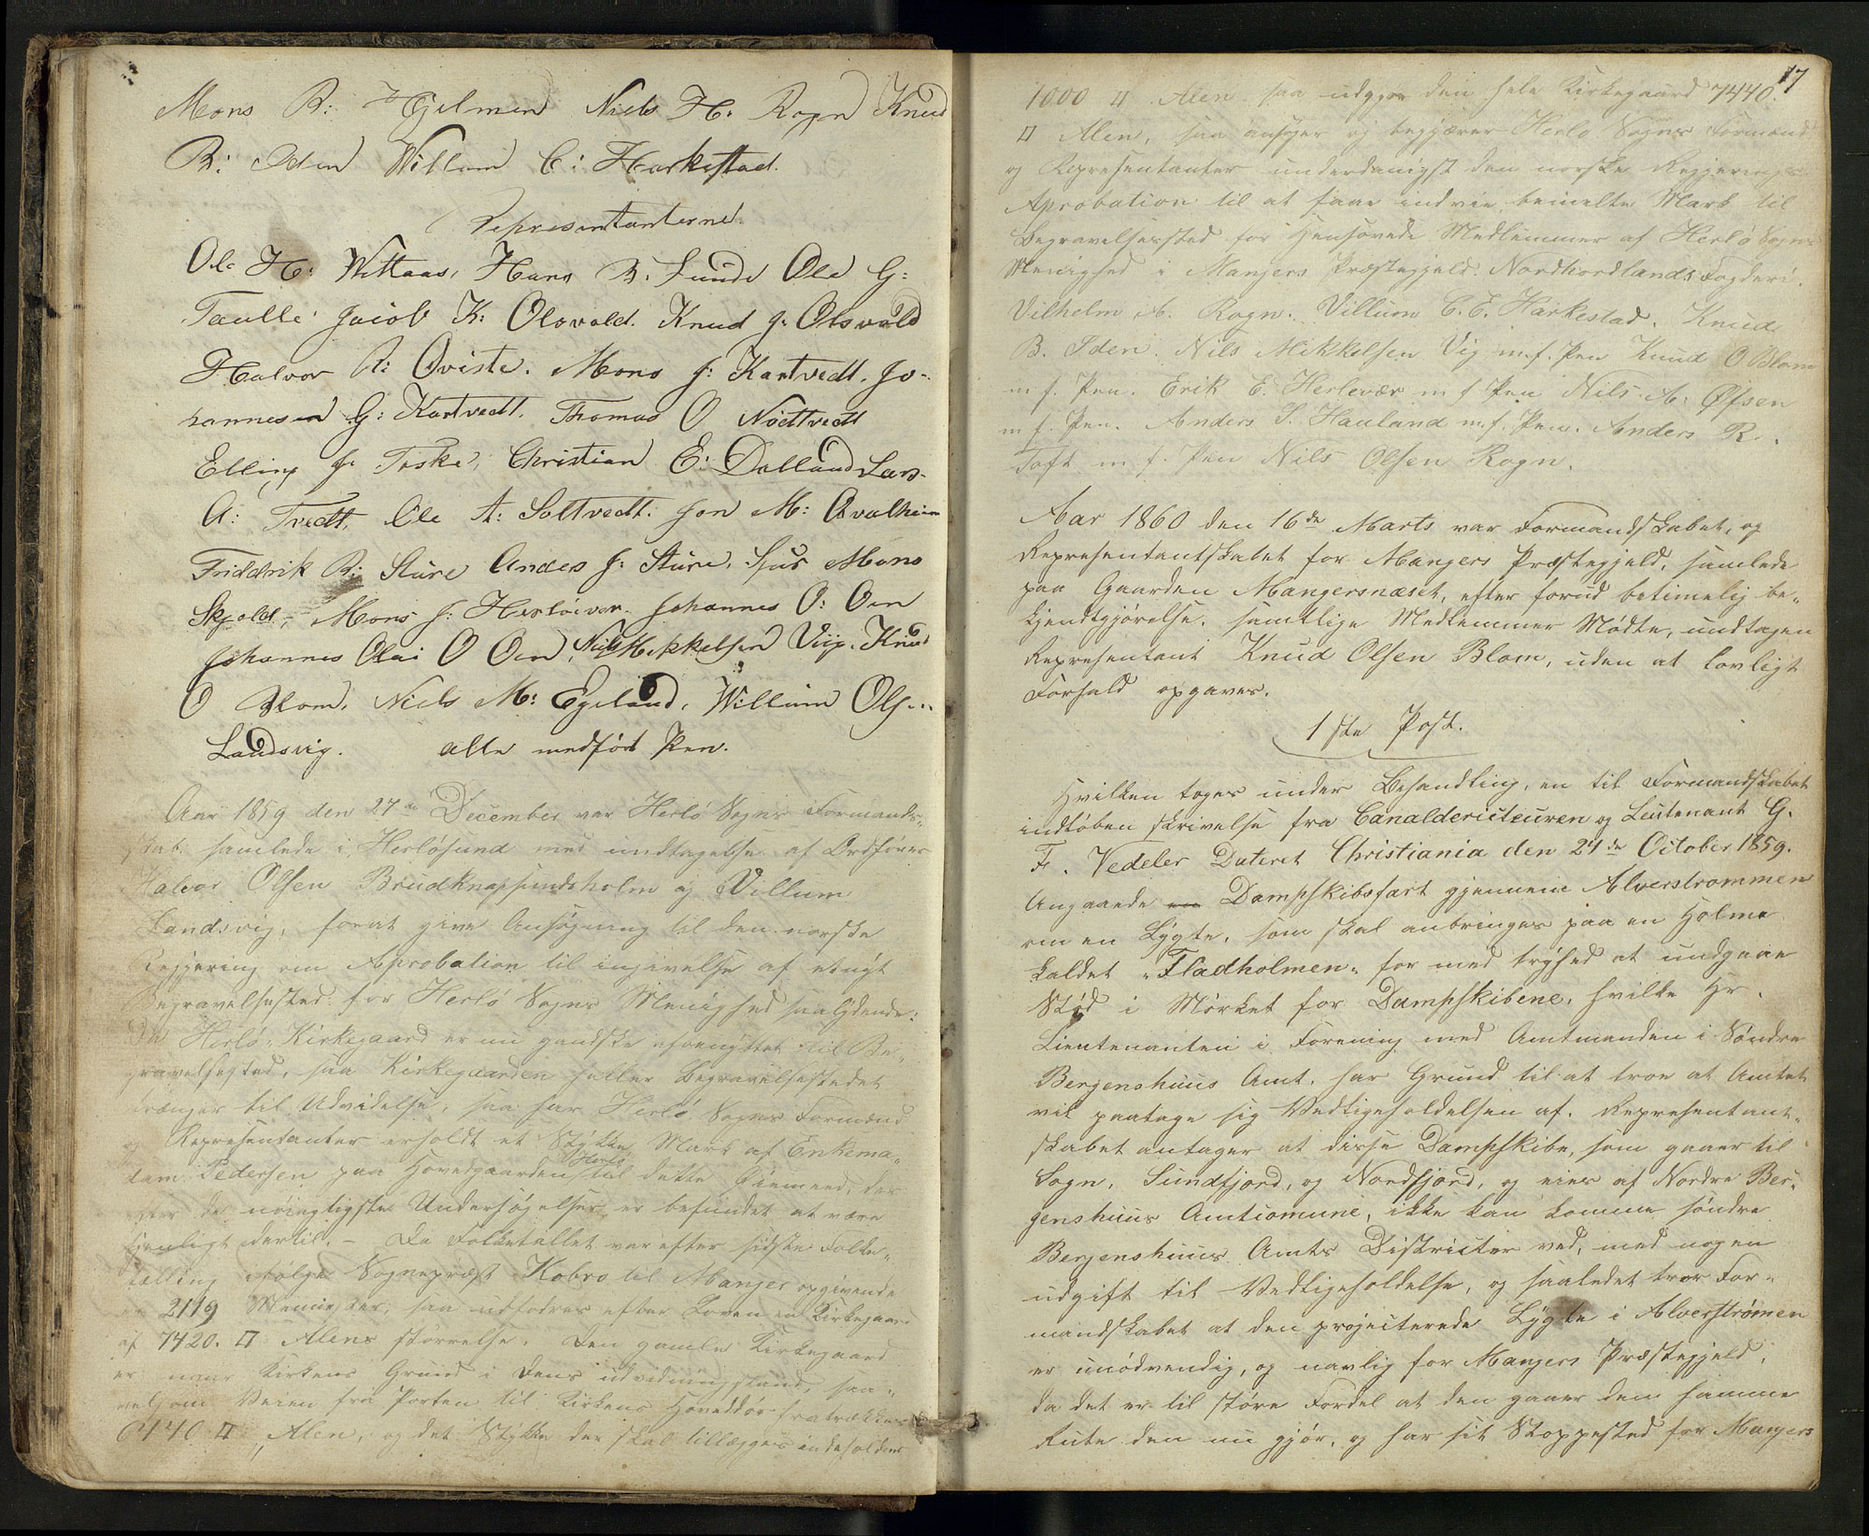 Mons B: Hjelmen Niels H: Rogn Knud
B: Iden Willum C: Harkestad.
Representanterne.
Ole H: Wittaas, Hans B: Lunde Ole G:
Taule Jacob K: Olsvold. Knud J: Olsvold
Halvor R: Qviste. Mons J: Kartvedt. Jo-
hannes G: Kartvedt. Thomas O Nöttvedt
Elling J: Toske, Christian E: Dalland Lars
A: Tvedt. Ole A: Soltvedt. Jon M: Qvalheim
Fridrik B: Sture Andes J: Sture, Sjur Mons
Skjold, Mons J: Herløiver. Johannes O: Oen
Johannes Olai O Oen, Nils Mikkelsen Viig. Knud
O Blom. Niels M: Egeland, Willum Ols..
Landsvig. alle medført Pen.
Aar 1859 den 27de December var Herlö Sogns Formands-
skab samlede i Herlösund med undtagelse af Ordförer
Halvor Olsen Brudknapsundsholm og Villum
Landsvig, forat give Ansøgning til den norske
Regjering om Aprobation til ingivelse af et nyt
Begravelsested for Herlö Sogns Menighed saalydende:
Da Herlö Kirkegaard er nu gandske afbenyttet til Be-
gravelsested, saa Kirkegaarden heller Begravelsestedet
trænger til Udvidelse, saa har Herlö Sogns Formænd
og Repræsentanter erholdt et Stykke Mark af Enkema-
dam Pedersen paa Hovedgaarden Herlö til dette Öiemed, der
efter de nöiagtigste Undersögelser er befundet at være
tjenligt dertil. – Da Folketallet var efter sidste Folke-
tælling ifølge Sognepræst Kobro til Manger opgivende
er 2119 Mennesker, saa udfodres efter Loven en Kirkegaard
af 7420. □ Alens störrelse. Den gamle Kirkegaard
er naar Kirkens Grund i dens udvidning stand, saa-
velsom Veien fra Porten til Kirkens Hoveddør fratrækkes
6440 □ Alen, og det Stykke der skal tillægges indeholder
17
1000 □ Alen saa udgjør den hele Kirkegaard 7440.
□ Alen, saa ansøger og begjærer Herlö Sogns Formænd
og Repræsentanter underdanigst den norske Regjerings
Aprobation til at faae indvie bemelte Mark til
Begravelsessted for Hensovede Medlemmer af Herlö Sogns
Menighed i Mangers Præstegjeld Nordhordlands Fogderi.
Vilhelm A. Rogn. Villum C. E. Harkestad. Knud
B. Iden. Nils Mikkelsen Vig m. f. Pen Knud O Blom
m f. Pen. Erik E. Herlevær m f Pen Nils A. Øfsen
m f. Pen. Anders I. Hauland m. f. Pen. Anders R.
Toft m. f. Pen Nils Olsen Rogn.
Aar 1860 den 16de Marts var Formandskabet, og
Representantskabet for Mangers Præstegjeld, samlede
paa Gaarden Mangersnæset, efter forud betimelig be-
kjendtgjørelse. samtlige Medlemmer Mødte, undtagen
Representant Knud Olsen Blom, uden at lovligt
Forfald opgaves.
1ste Post.
Hvilken toges under Behandling, en til Formandskabet
indløben skrivelse fra Canaldericteuren og Leutenant G.
Fr. Vedeler Dateret Christiania den 27de October 1859.
Angaaede Dampskibsfart gjennem Alverstrommen
om en Lygte, som skal anbringes paa en Holme
kaldet "Fladholmen" for med tryhed at undgaae
Stød i Mørket for Dampskibene, hvilke Hr.
Lieutenanten i Forening med Amtmanden i Söndre
Bergenshuus Amt. har Grund til at troe at Amtet
vil paatage sig Vedligeholdelsen af. Representant-
skabet antager at disse Dampskibe, som gaaer til
Sogn, Sundfjord, og Nordfjord, og eies af Nordre Ber-
genshuus Amtcomune, ikke kan komme søndre
Bergenshuus Amts Districter ved, med nogen
udgift til Vedligeholdelse, og saaledet troer For-
mandskabet at den projecterede Lygte i Alverströmen
er unödvendig, og navlig for Mangers Præstegjeld,
da det er til störe Fordel at den gaaer den samme
Rute den nu gjör, og har sit Stoppested for Mangers